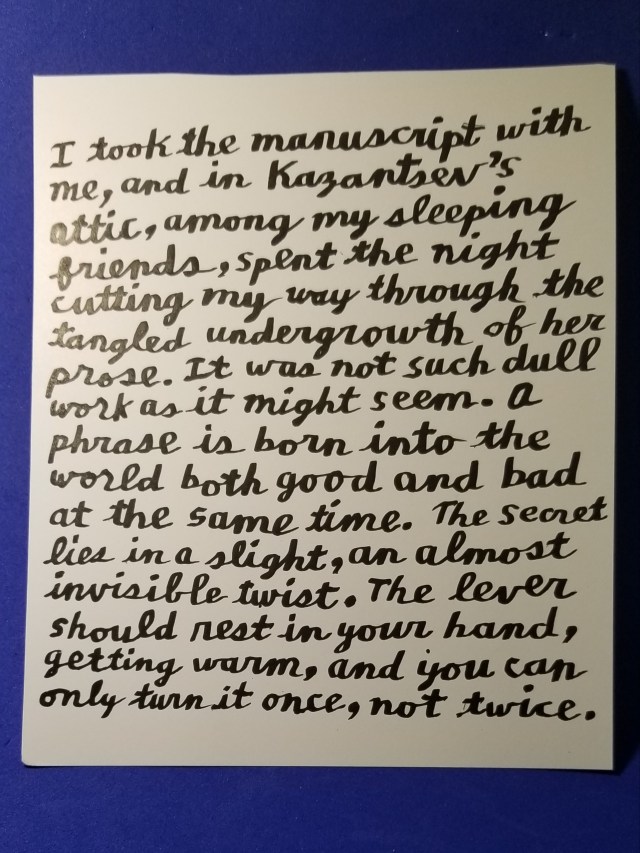 I took the manuscript with
me, and in Kazantsev's
attic, among my sleeping
friends, spent the night
cutting my way through the
tangled undergrowth of her
prose. It was not such dull
work as it might seem. A
phrase is born into the
world both good and bad
at the same time. The secret
lies in a slight, an almost
invisible twist. The lever
should rest in your hand,
getting warm, and you can
only turn it once, not twice.